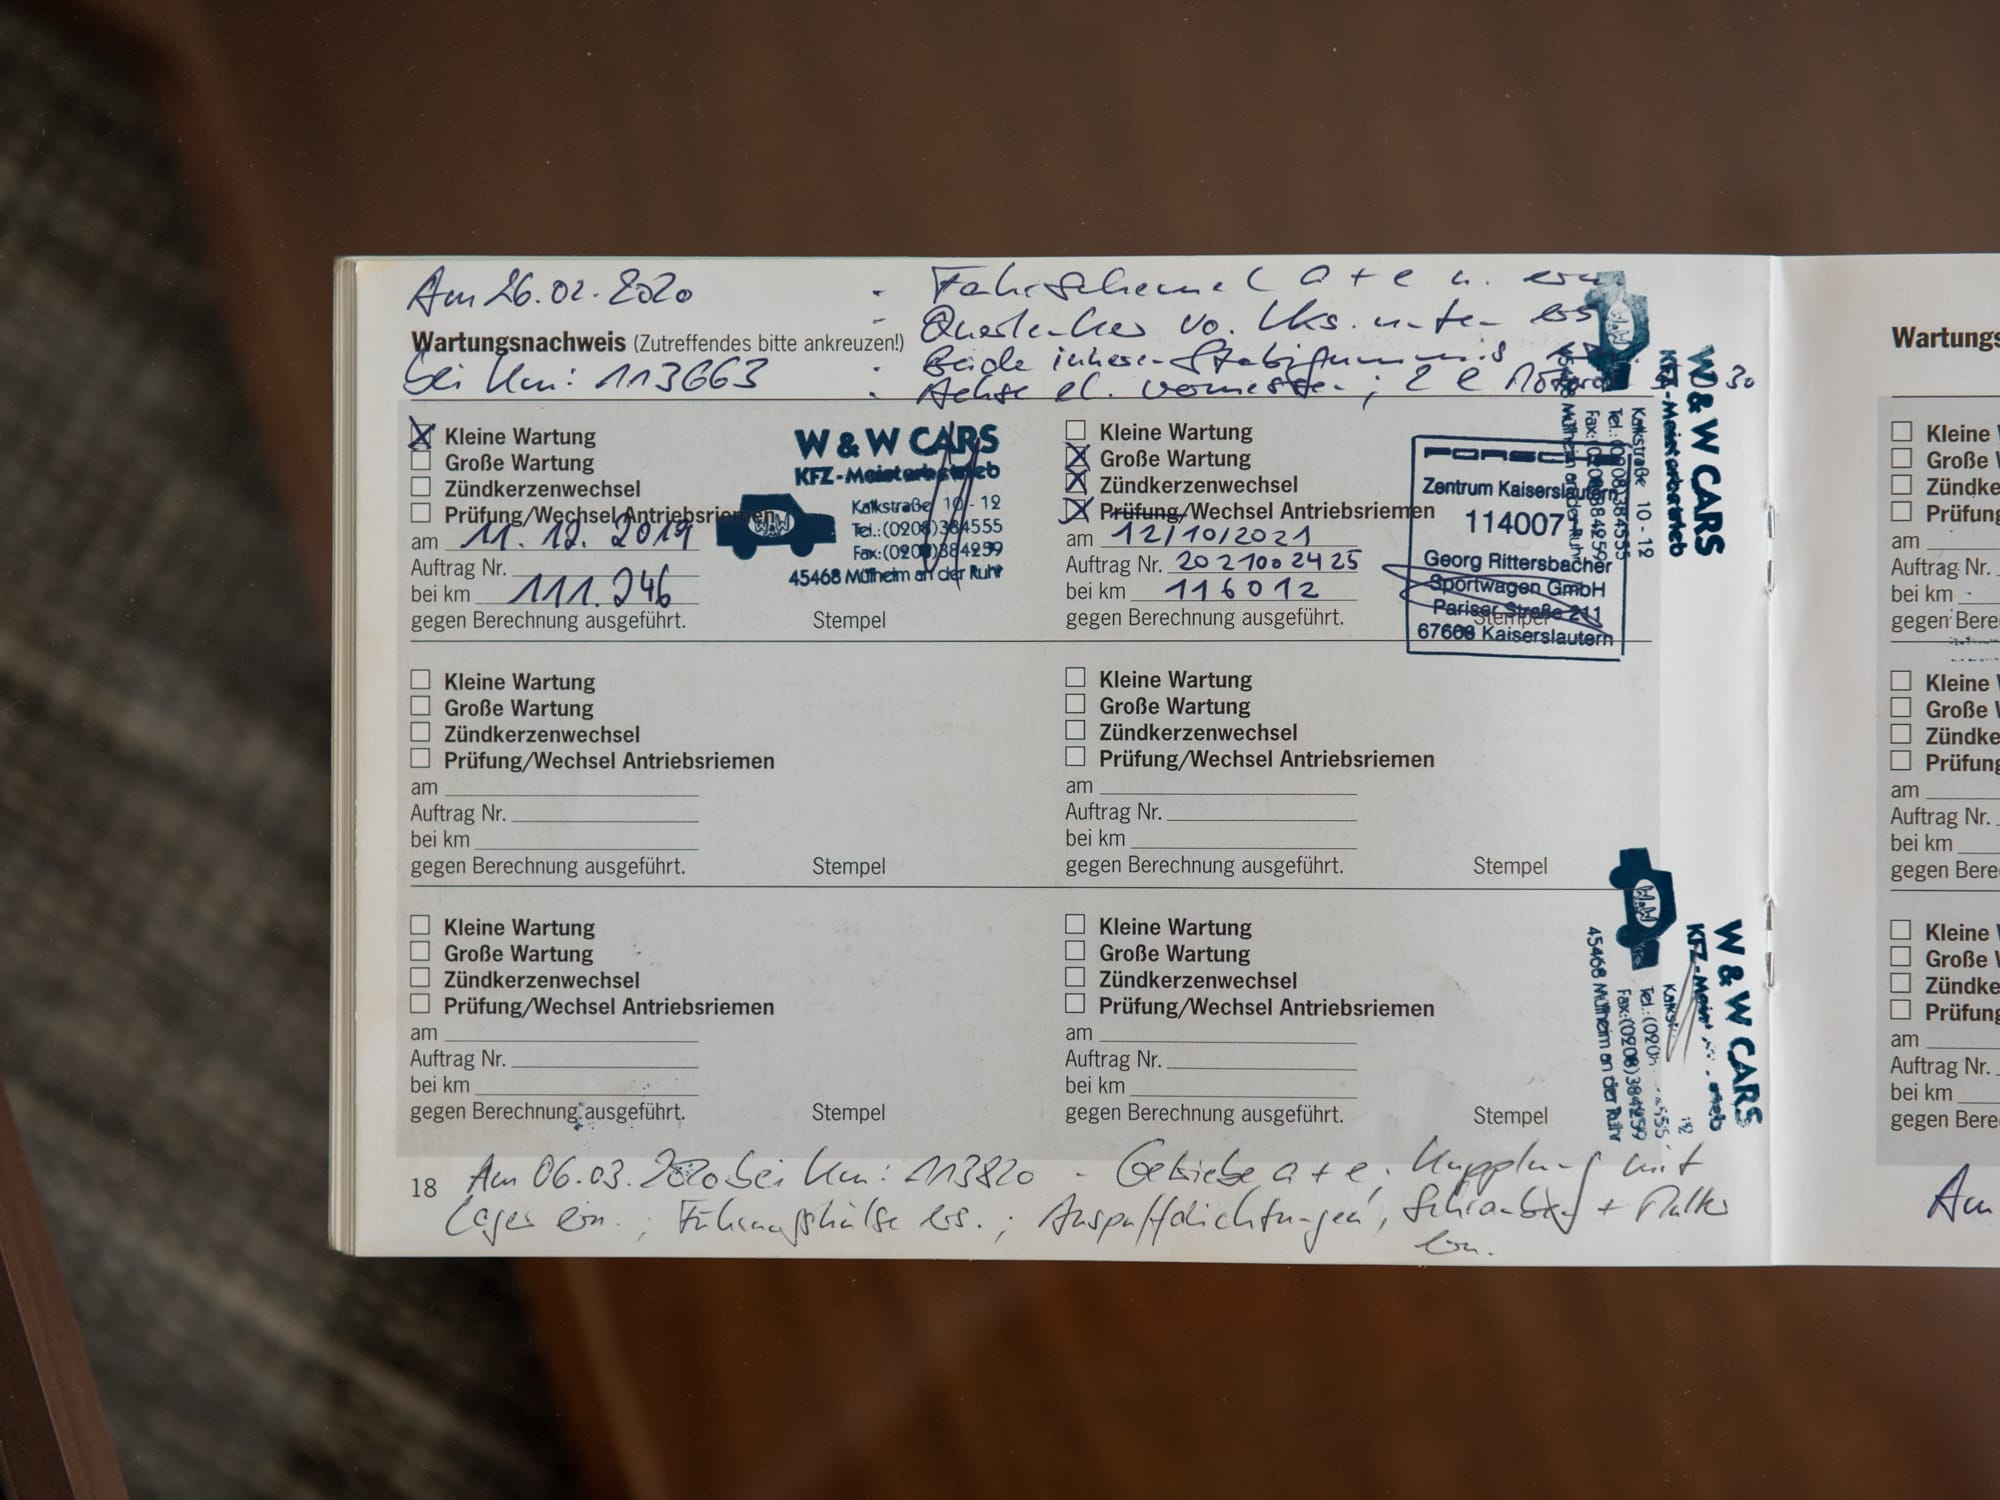 Am 26.02.2020
Wartungsnachweis (Zutreffendes bitte ankreuzen!)
bei Km: 113663
- Fahrschemel a + e u. ern
- Querlenker vo. lks. unten ers
- Beide inneren Stabigummis
- Achse el. vermessen; 2 l 30
Kleine Wartung
Große Wartung
Zündkerzenwechsel
Prüfung/Wechsel Antriebsriemen
am 11.12.2019
Auftrag Nr.
bei km 111.246
gegen Berechnung ausgeführt.
W & W CARS
KFZ-Meisterbetrieb
Kalkstraße 10 - 12
Tel.:(0208)384555
Fax:(0208)384259
45468 Mülheim an der Ruhr
Stempel
Kleine Wartung
Große Wartung
Zündkerzenwechsel
Prüfung/Wechsel Antriebsriemen
am 12/10/2021
Auftrag Nr. 2021002425
bei km 116012
gegen Berechnung ausgeführt.
PORSCHE
Zentrum Kaiserslautern
114007
Georg Rittersbacher
Sportwagen GmbH
Pariser Straße 211
Kaiserslautern
Stempel
W & W CARS
KFZ-Meisterbetrieb
Kalkstraße 10 - 12
Tel.:(0208)384555
Fax:(0208)384259
45468 Mülheim an der Ruhr
Kleine Wartung
Große Wartung
Zündkerzenwechsel
Prüfung/Wechsel Antriebsriemen
am
Auftrag Nr.
bei km
gegen Berechnung ausgeführt.
Stempel
Kleine Wartung
Große Wartung
Zündkerzenwechsel
Prüfung/Wechsel Antriebsriemen
am
Auftrag Nr.
bei km
gegen Berechnung ausgeführt.
Stempel
Kleine Wartung
Große Wartung
Zündkerzenwechsel
Prüfung/Wechsel Antriebsriemen
am
Auftrag Nr.
bei km
gegen Berechnung ausgeführt.
Stempel
Kleine Wartung
Große Wartung
Zündkerzenwechsel
Prüfung/Wechsel Antriebsriemen
am
Auftrag Nr.
bei km
gegen Berechnung ausgeführt.
Stempel
W & W CARS
Fax:(0208)384259
45468 Mülheim an der Ruhr
18
Am 06.03.2020 bei Km: 113820 - Getriebe a + e; Kupplung mit
Lager ern.; Führungshülse ers.; Auspuffdichtungen, Schrauben + Mutter
ern.
Wartungs
Kleine W
Große W
Zündke
Prüfung
am
Auftrag Nr.
bei km
gegen Bere
Kleine W
Große W
Zündke
Prüfung
am
Auftrag Nr.
bei km
gegen Bere
Kleine W
Große W
Zündke
Prüfung
am
Auftrag Nr.
bei km
gegen Bere
Am